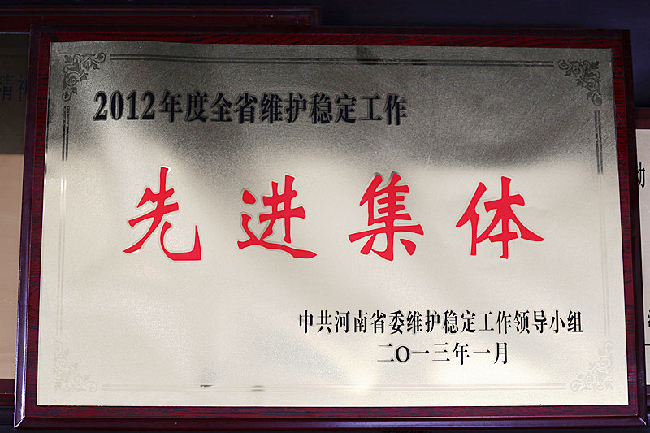 2012年度全省维护稳定工作
先进集体
中共河南省委维护稳定工作领导小组
二〇一三年一月